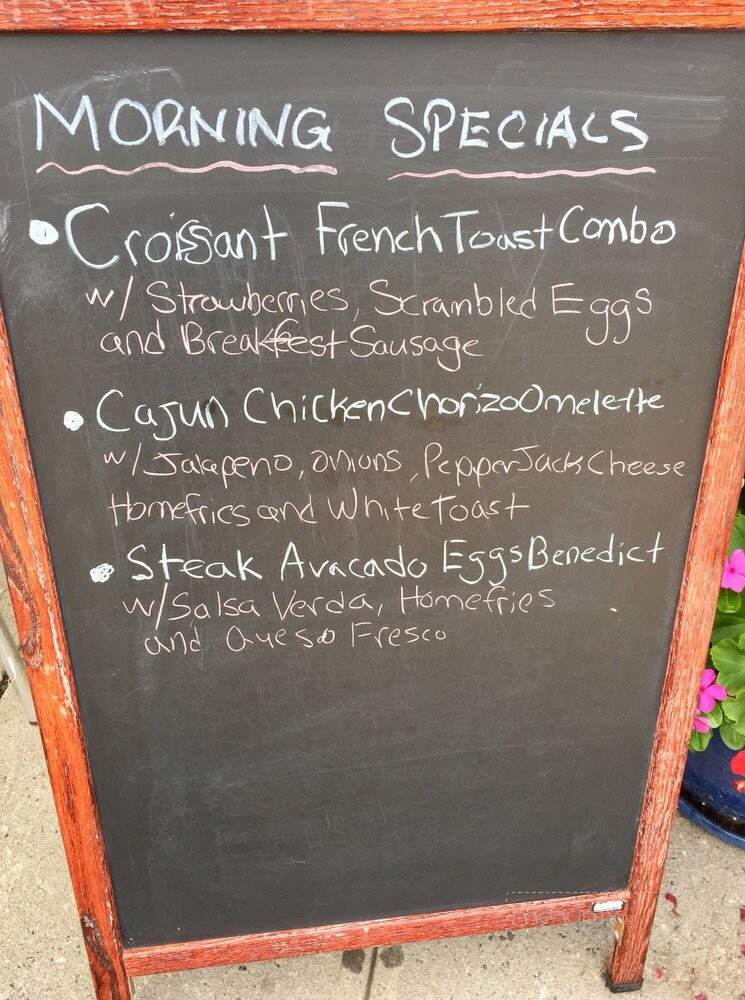 MORNING SPECIALS
• Croissant French Toast Combo
w/ Strawberries, Scrambled Eggs
and Breakfest Sausage
• Cajun Chicken Chorizo Omelette
w/ Jalapeno, onions, Pepper Jack Cheese
Homefries and White Toast
• Steak Avacado Eggs Benedict
w/ Salsa Verda, Homefries
and Queso Fresco